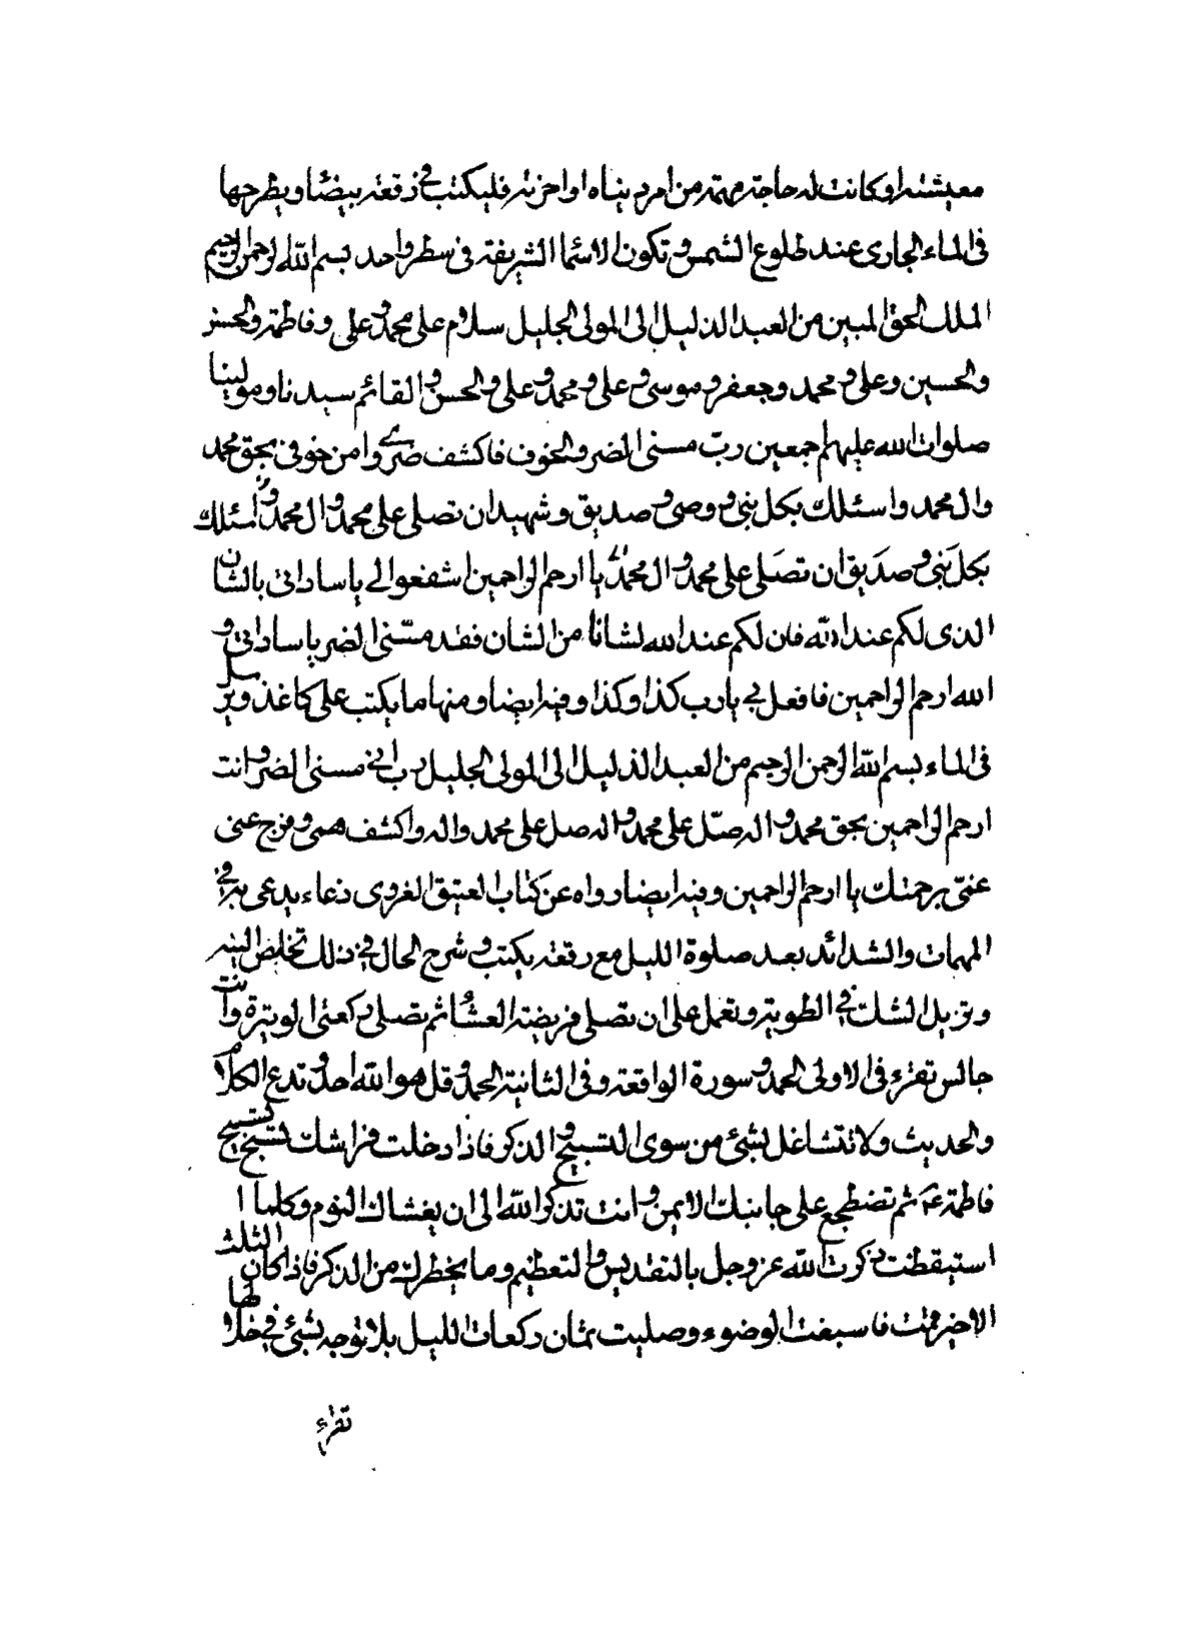 معيشته او كانت له حاجة مهمة من امر دنياه او اخرته فليكتب فى رقعة بيضا ويطرحها
فى الماء الجارى عند طلوع الشمس وتكون الاسما الشريفة فى سطر واحد بسم الله الرحمن الرحيم
الملك الحق المبين من العبد الذليل الى المولى الجليل سلام على محمد وعلى وفاطمة والحسن
والحسين وعلى ومحمد وجعفر وموسى وعلى ومحمد وعلى والحسن والقائم سيدنا ومولينا
صلوات الله عليهم اجمعين رب مسنى الضر والخوف فاكشف ضرى وامن خوفى بحق محمد
وال محمد واسئلك بكل نبى ووصى وصديق وشهيد ان تصلى على محمد وال محمد واسئلك
بكل نبى وصديق ان تصلى على محمد وال محمد يا ارحم الراحمين اشفعوا لى يا ساداتى بالشان
الذى لكم عند الله فان لكم عند الله لشانا من الشان فقد مسنى الضر يا ساداتى و
الله ارحم الراحمين فافعل بى يا رب كذا وكذا وفيه ايضا ومنها ما يكتب على كاغذ ويرسل
فى الماء بسم الله الرحمن الرحيم من العبد الذليل الى المولى الجليل رب انى مسنى الضر وانت
ارحم الراحمين بحق محمد واله صل على محمد واله صل على محمد واله واكشف همى وفرج عنى
غمى برحمتك يا ارحم الراحمين وفيه ايضا رواه عن كتاب العتيق الغروى دعاء يدعى به فى
المهمات والشدائد بعد صلوة الليل مع رقعة يكتب وشرح الحال فى ذلك تخلص النية
وتزيل الشك فى الطوية وتعمل على ان تصلى فريضة العشا ثم تصلى ركعتى الوتيرة وانت
جالس تقرء فى الاولى الحمد وسورة الواقعة وفى الثانية الحمد وقل هو الله احد وتدع الكلام
والحديث ولا تتشاغل بشئ من سوى التسبيح والذكر فاذا دخلت فراشك فسبح تسبيح
فاطمة ع ثم تضطجع على جانبك الايمن وانت تذكر الله الى ان يغشاك النوم وكلما ا
استيقظت ذكرت الله عز وجل بالتقديس والتعظيم وما يخطر لك من الذكر فاذا كان الثلث
الاخير قمت فاسبغت الوضوء وصليت ثمان ركعات الليل بلا توجه بشئ فى خلالها
تقرء